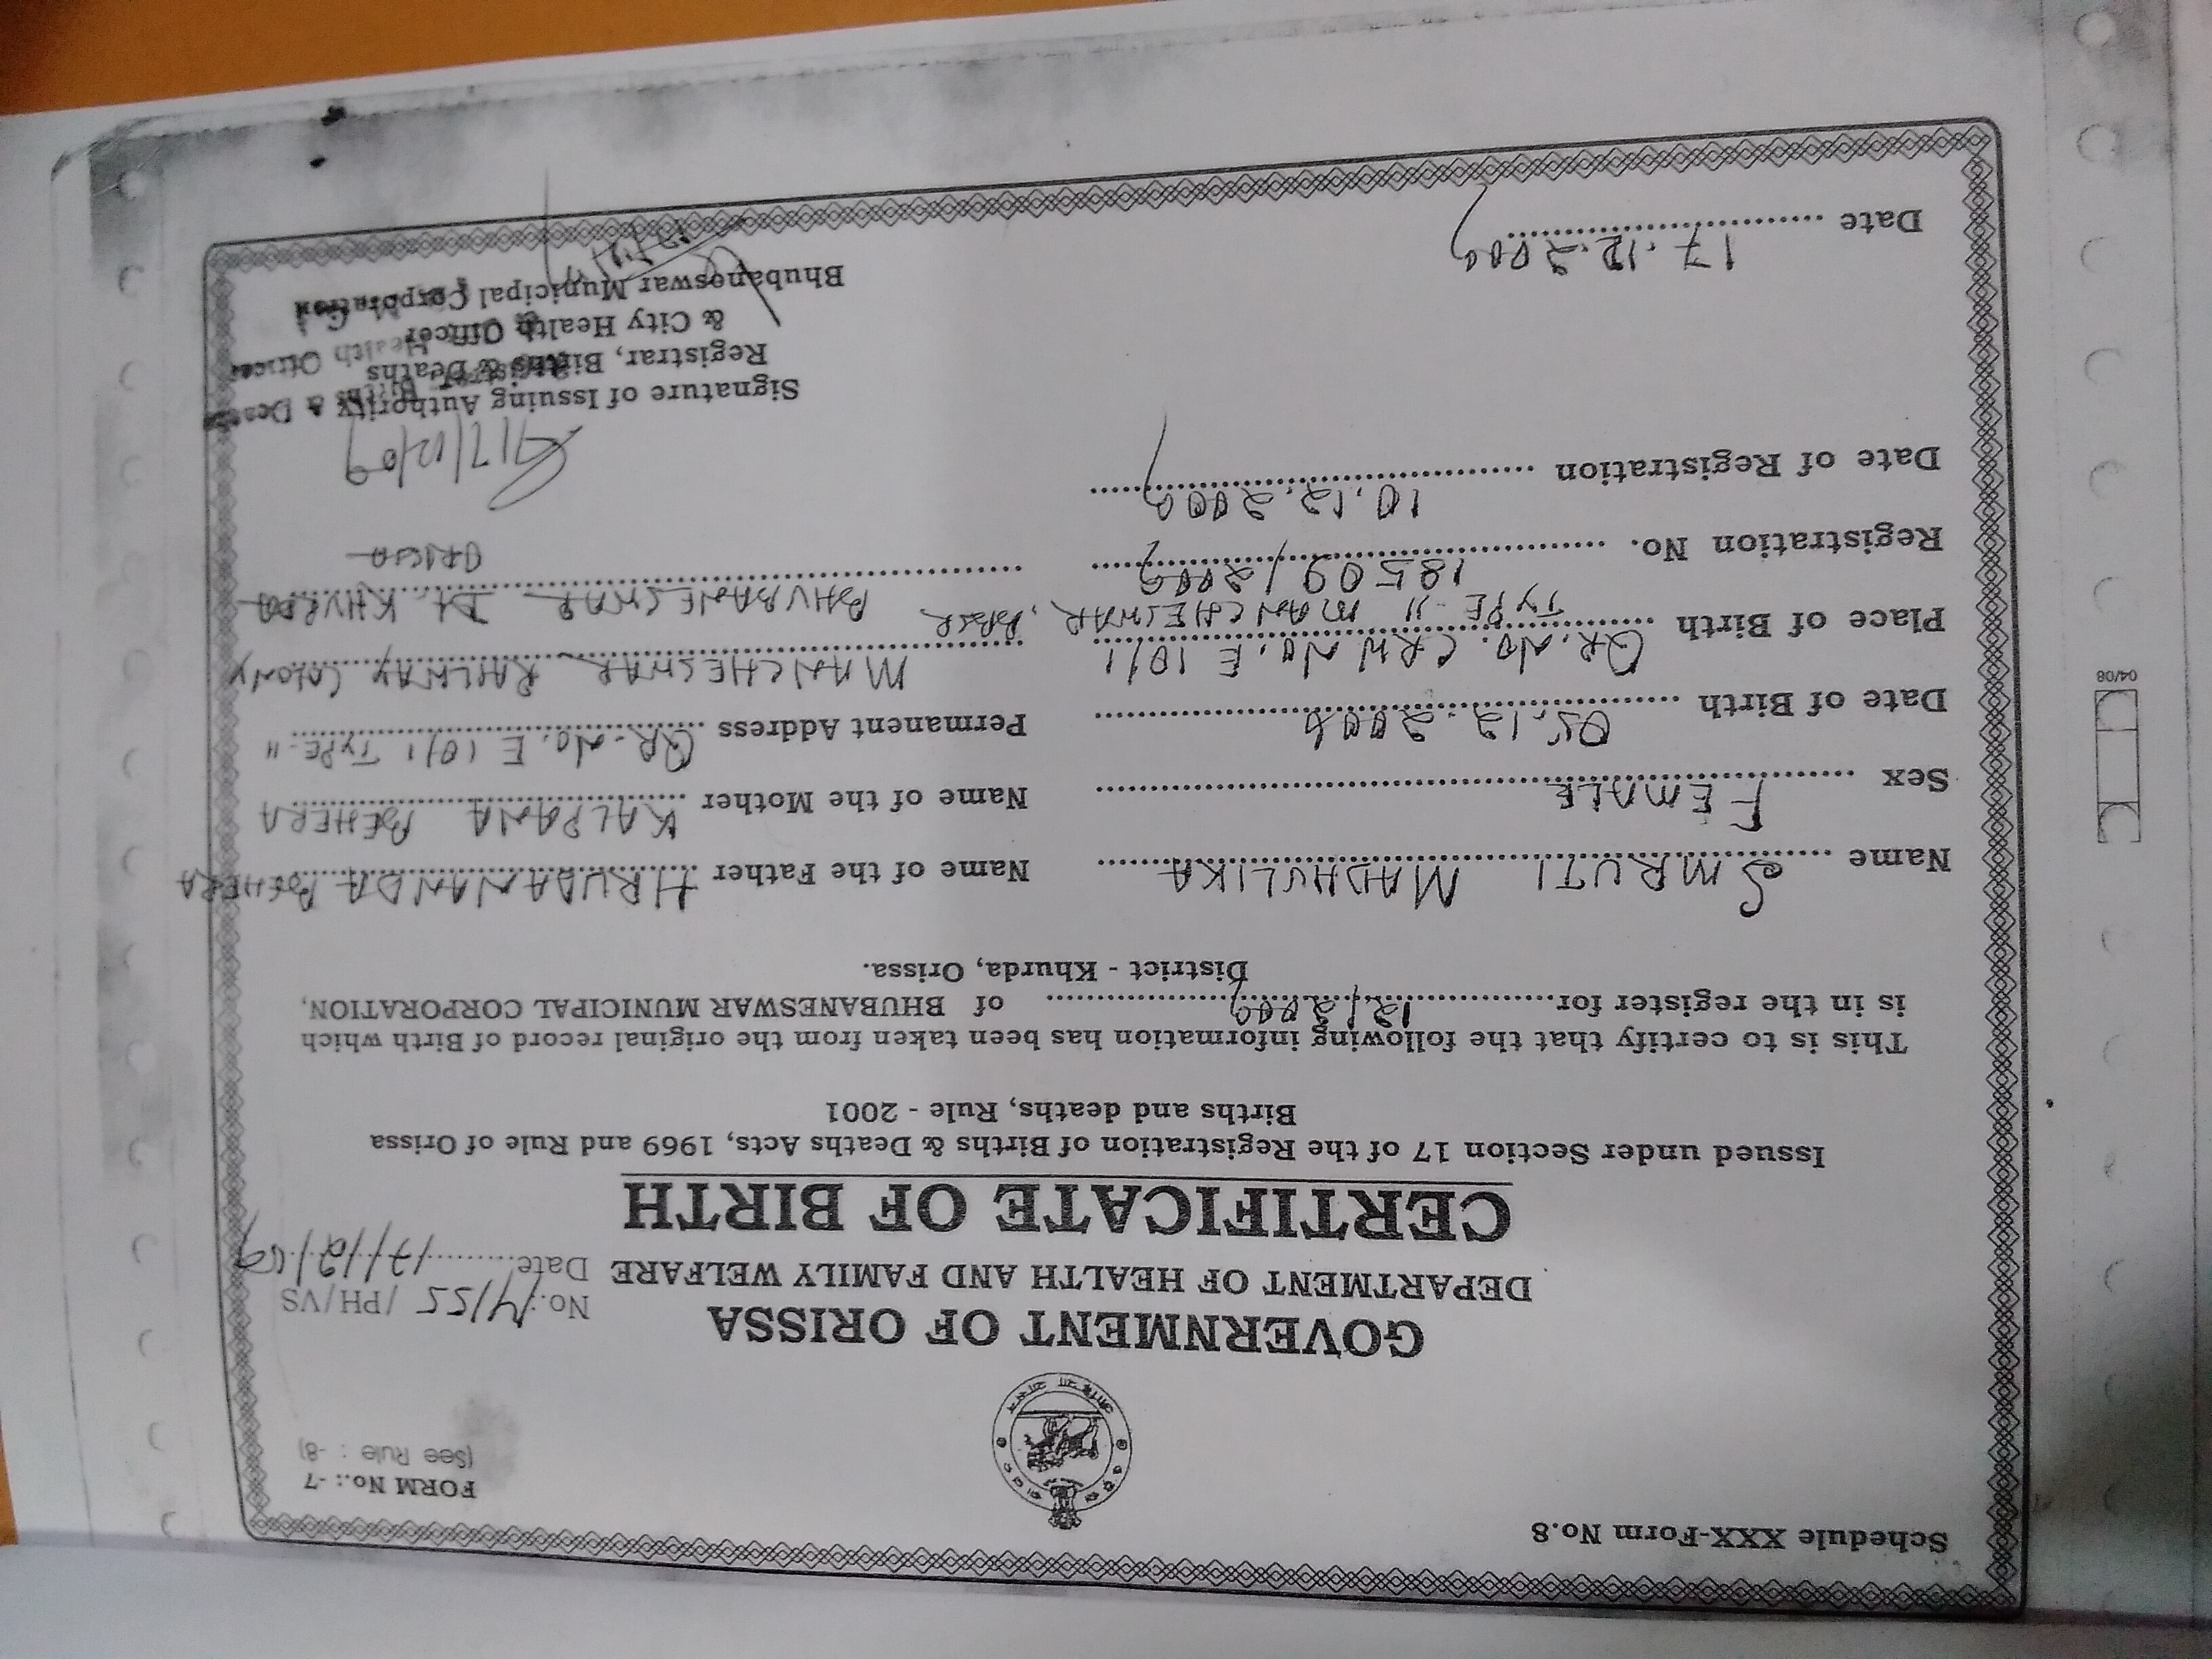 Schedule XXX-Form No.8
FORM No.: -7
(See Rule : -8)
GOVERNMENT OF ORISSA
DEPARTMENT OF HEALTH AND FAMILY WELFARE
No.: 14155 /PH/VS
Date 17/12/09
CERTIFICATE OF BIRTH
Issued under Section 17 of the Registration of Births & Deaths Acts, 1969 and Rule of Orissa
Births and deaths, Rule - 2001
This is to certify that the following information has been taken from the original record of Birth which
is in the register for 12/2009 of BHUBANESWAR MUNICIPAL CORPORATION,
District - Khurda, Orissa.
Name SMRUTI MADHULIKA
Sex FEMALE
Date of Birth 05.12.2006
Place of Birth QR. No. CRW No. E 10/1
TYPE-II MANCHESWAR, BBSR
Registration No. 18509/2009
Date of Registration 10.12.2009
Date 17.12.2009
Name of the Father HRUDANANDA BEHERA
Name of the Mother KALPANA BEHERA
Permanent Address QR. No. E 10/1 TYPE-II
MANCHESWAR RAILWAY COLONY
BHUBANESWAR Dt. KHURDA
ORISSA
17/12/09
Signature of Issuing Authority
Registrar, Births & Deaths
& City Health Officer
Bhubaneswar Municipal Corporation
04/08